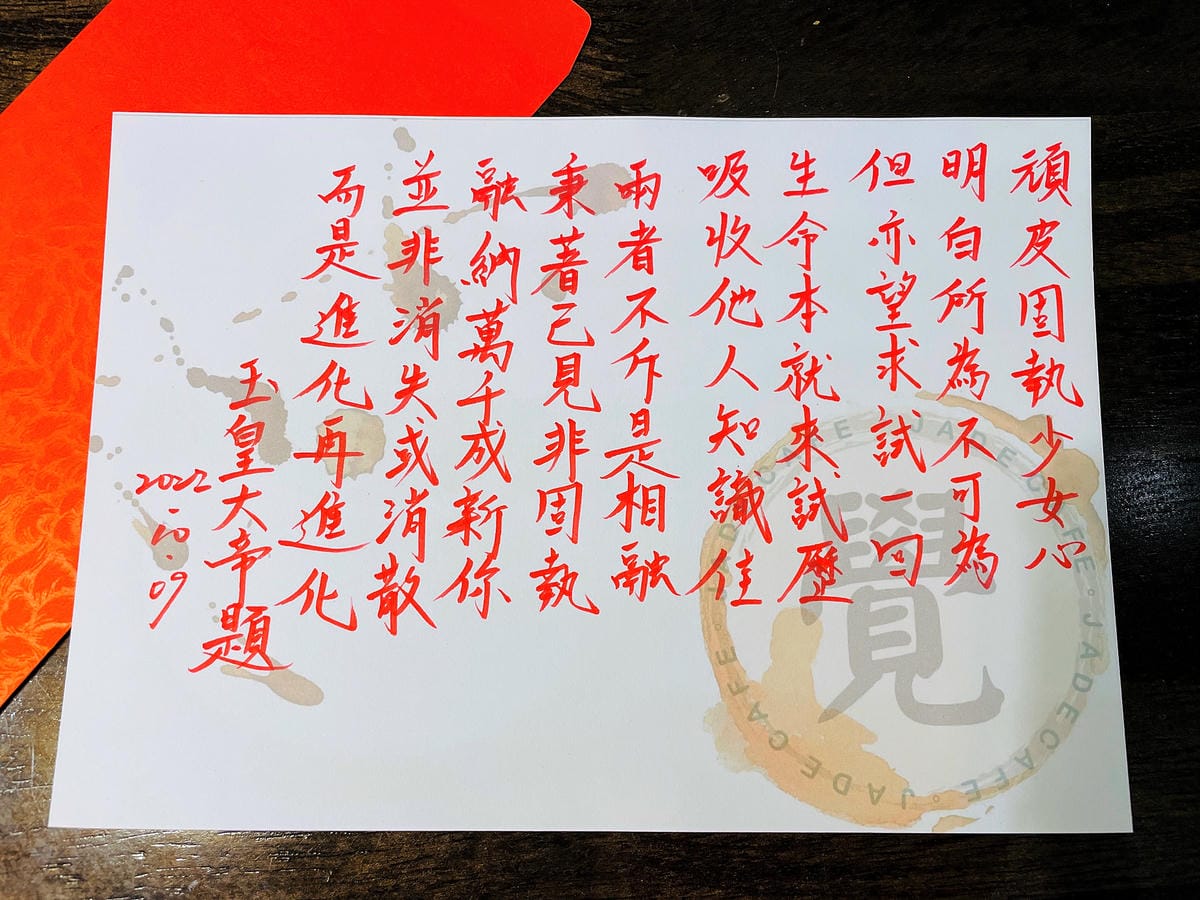 頑皮固執少女心
明白所為不可為
但亦望求試一回
生命本就來試歷
吸收他人知識佳
兩者不斥是相融
秉著己見非固執
融納萬千成新你
並非消失或消散
而是進化再進化
玉皇大帝題
2022.10.09
覺
JADE CAFE。JADE CAFE。JADE CAFE。JADE CAFE。